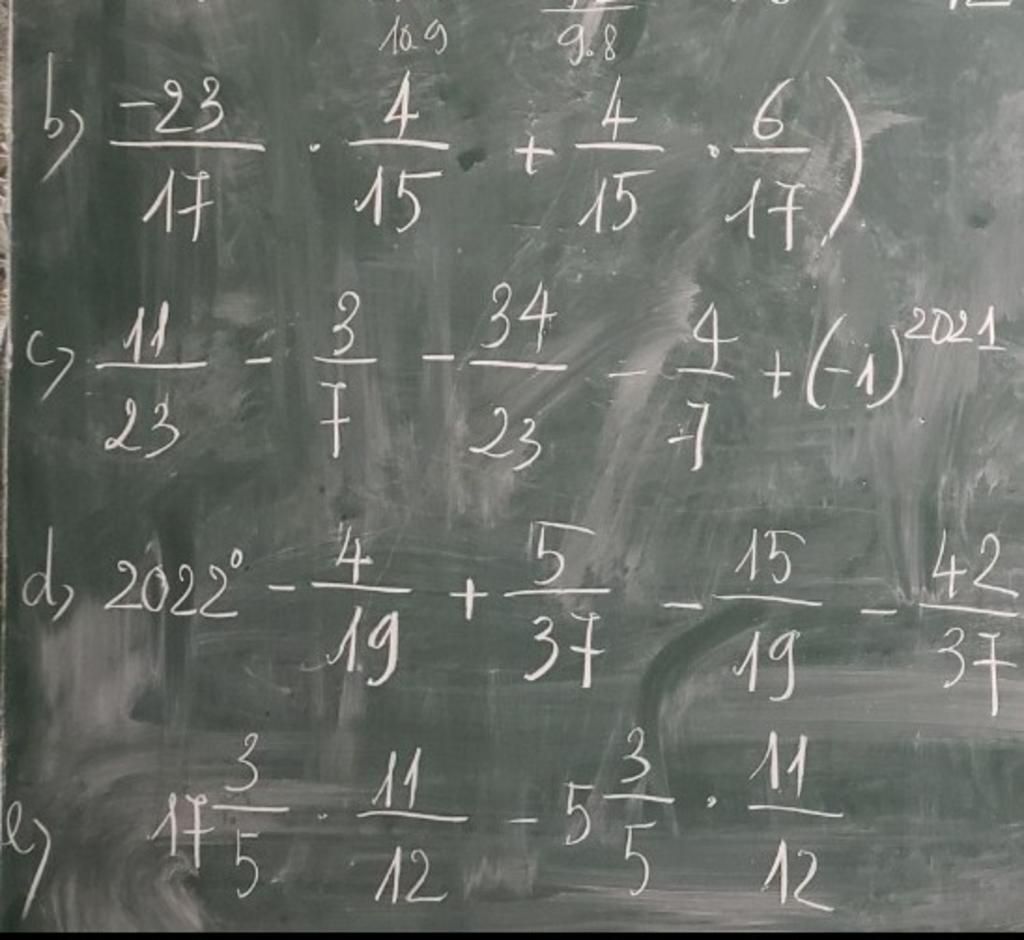 10.9 9.8
b) \frac{-23}{17} . \frac{4}{15} + \frac{4}{15} . \frac{6}{17} )
c) \frac{11}{23} - \frac{3}{7} - \frac{34}{23} - \frac{4}{7} + (-1)^{2021}
d) 2022^0 - \frac{4}{19} + \frac{5}{37} - \frac{15}{19} - \frac{42}{37}
e) 17\frac{3}{5} . \frac{11}{12} - 5\frac{3}{5} . \frac{11}{12}